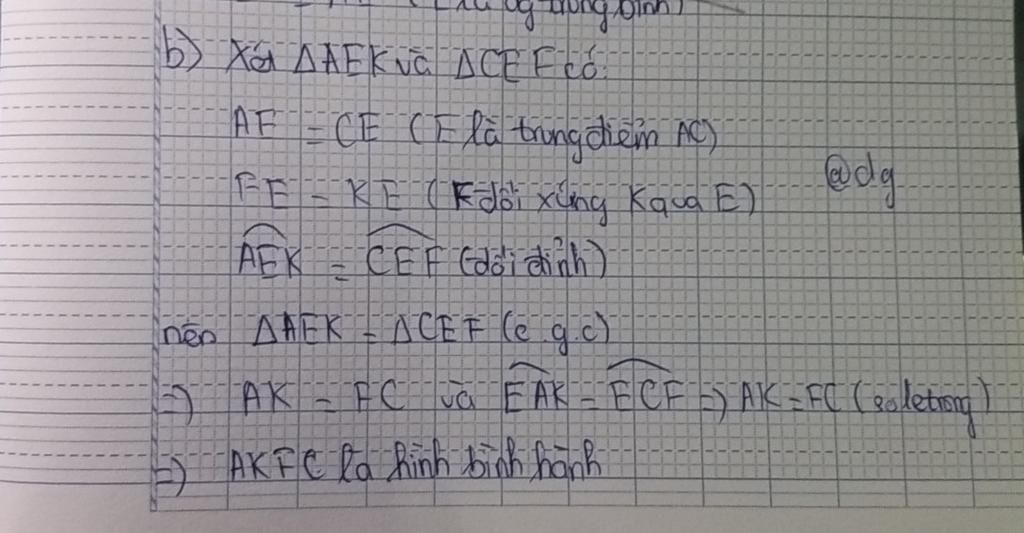 (là đg trung bình)
b) Xét ΔAEK và ΔCEF có:
AE = CE (E là trung điểm AC)
FE = KE (F đối xứng K qua E)
@dg
AEK = CEF (đối đỉnh)
nên ΔAEK = ΔCEF (c.g.c)
=> AK = FC và EAK = ECF => AK = FC (so le trong)
=> AKFC là hình bình hành